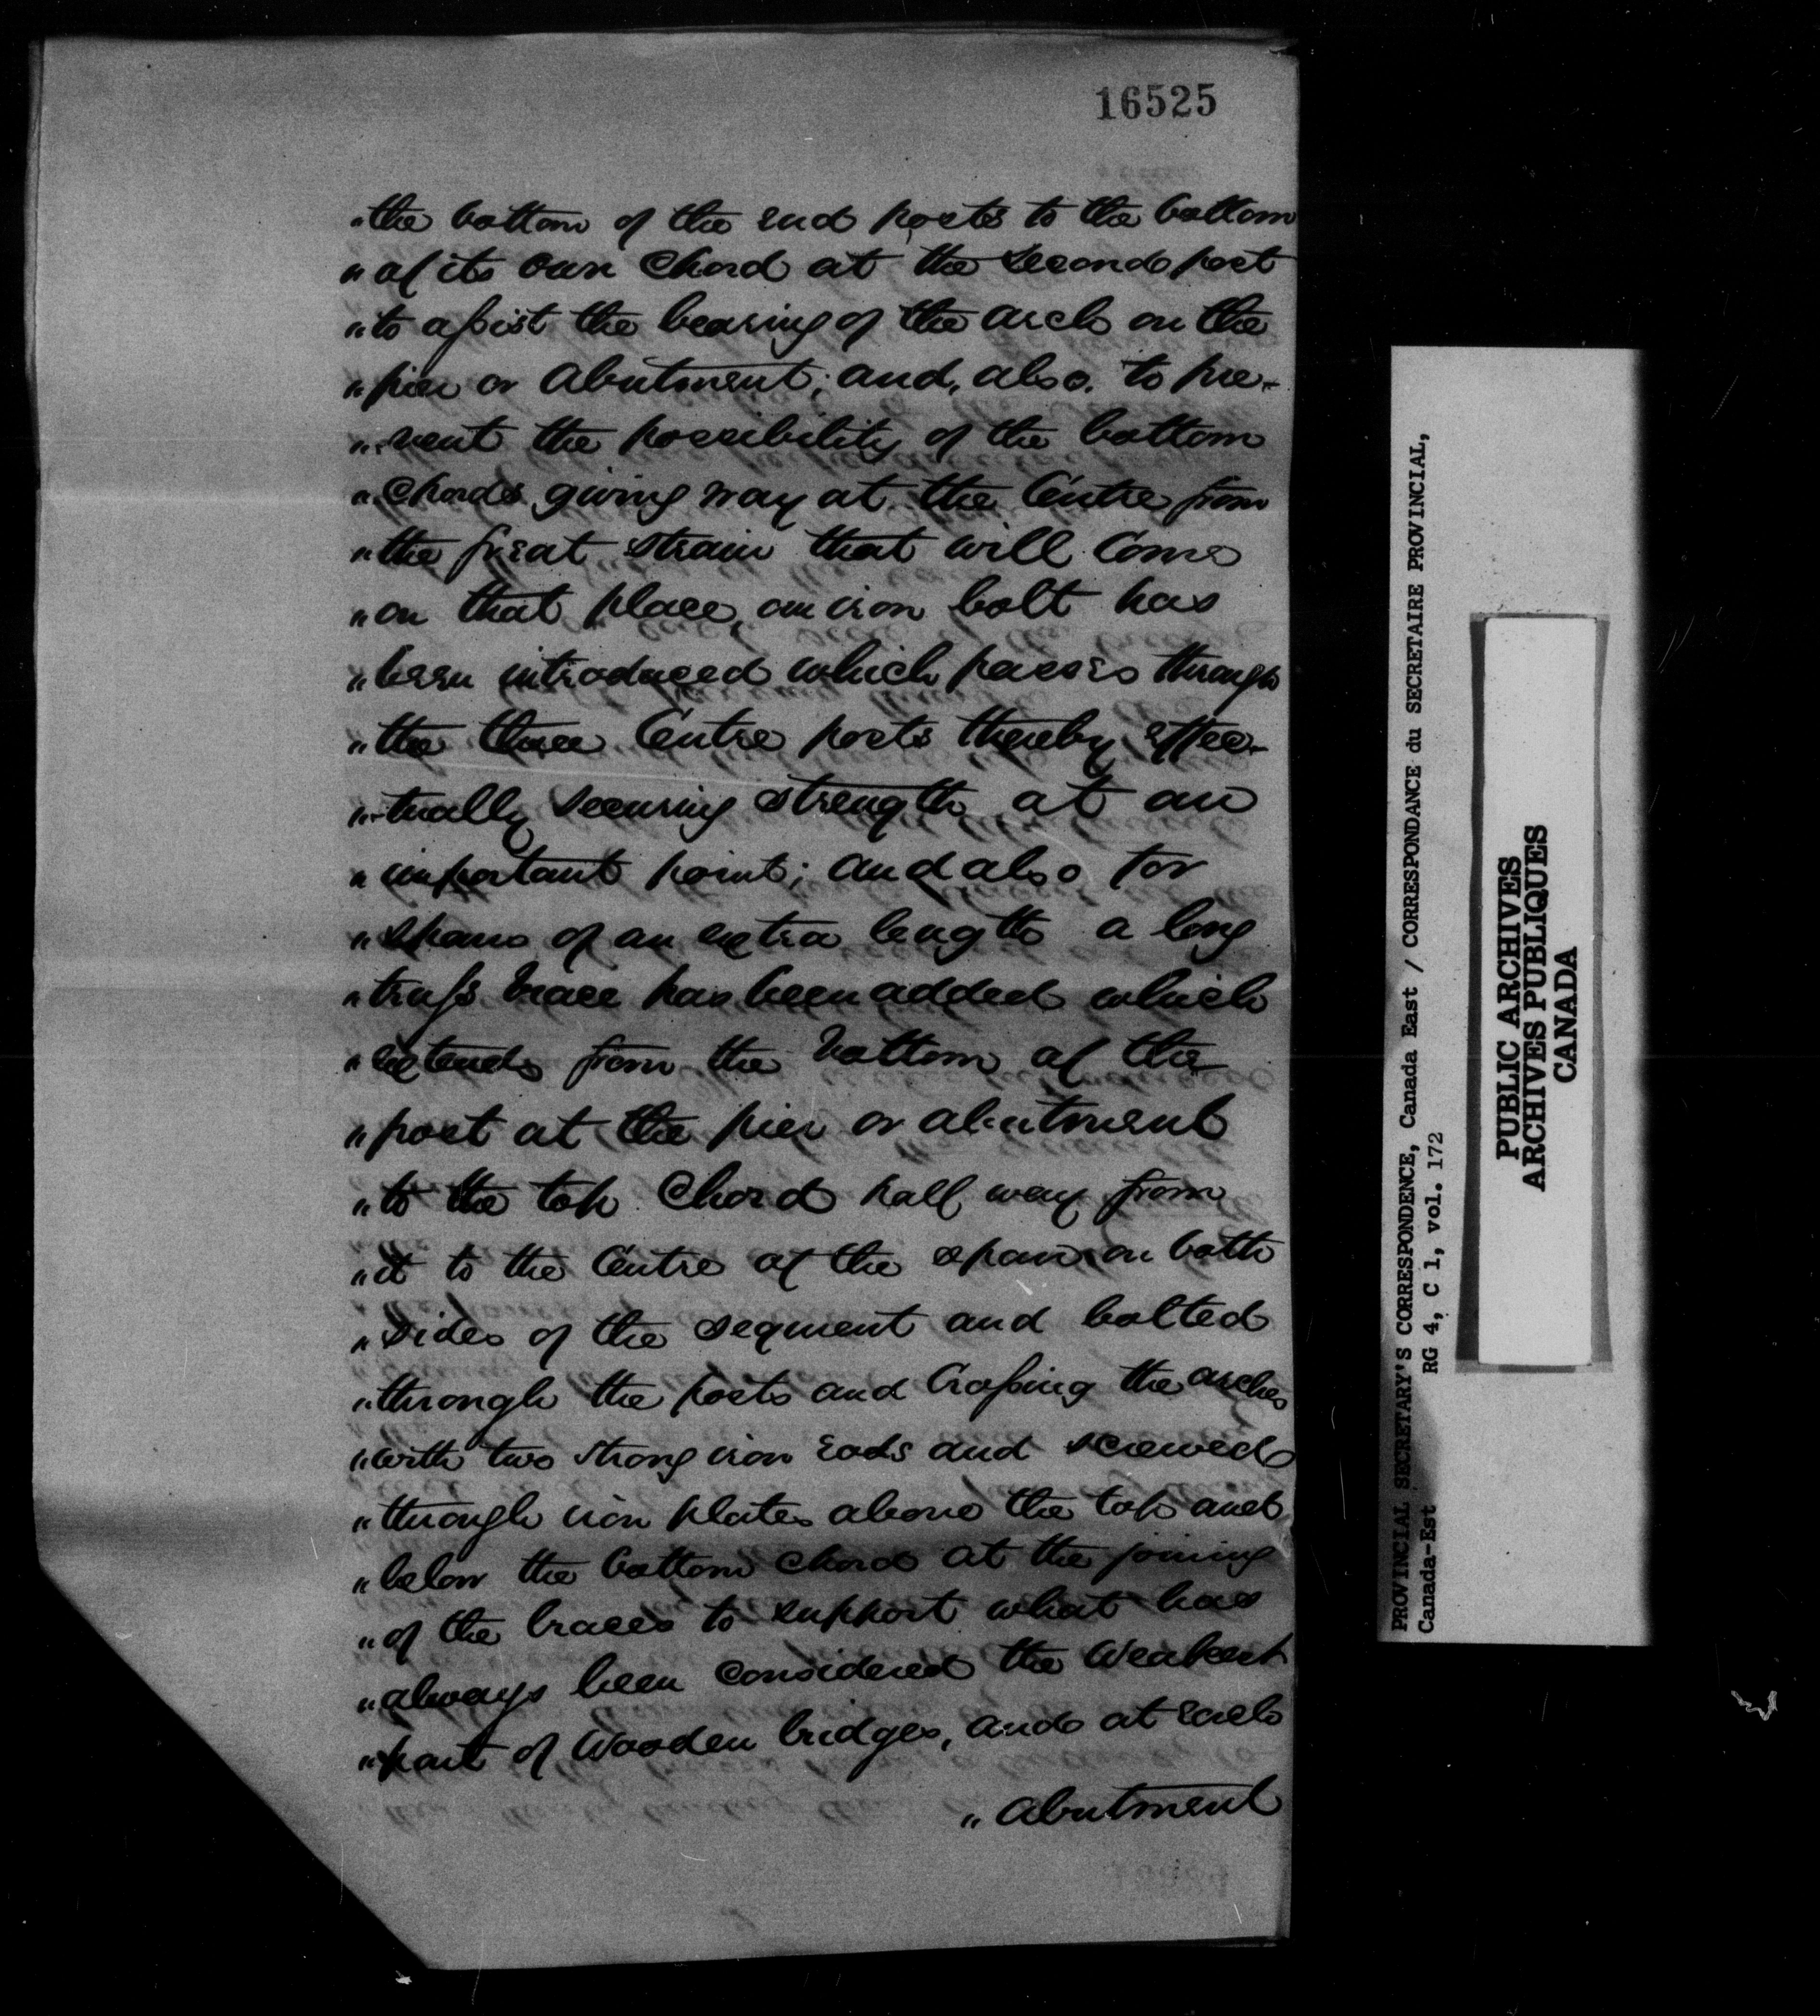 16525
"the bottom of the end posts to the bottom
"of its own Chord at the second post
"to assist the bearing of the arch on the
"pier or Abutment; and, also, to pre-
"-vent the possibility of the bottom
"Chords giving way at the Centre from
"the great strain that will Come
"on that place, an iron bolt has
"been introduced which passes through
"the three Centre posts thereby effec-
"-tually securing strength at an
"important point; and also for
"spans of an extra length a long
"truss brace has been added which
"extends from the bottom of the
"post at the pier or abutment
"to the top Chord half way from
"it to the Centre of the span on both
"sides of the segment and bolted
"through the posts and Crossing the arches
"with two strong iron rods and screwed
"through iron plates above the top and
"below the bottom chord at the joining
"of the braces to support what has
"always been Considered the Weakest
"part of Wooden bridges, and at each
"Abutment
PROVINCIAL SECRETARY'S CORRESPONDENCE, Canada East / CORRESPONDANCE du SECRETAIRE PROVINCIAL,
Canada-Est RG 4, C 1, vol. 172
PUBLIC ARCHIVES
ARCHIVES PUBLIQUES
CANADA